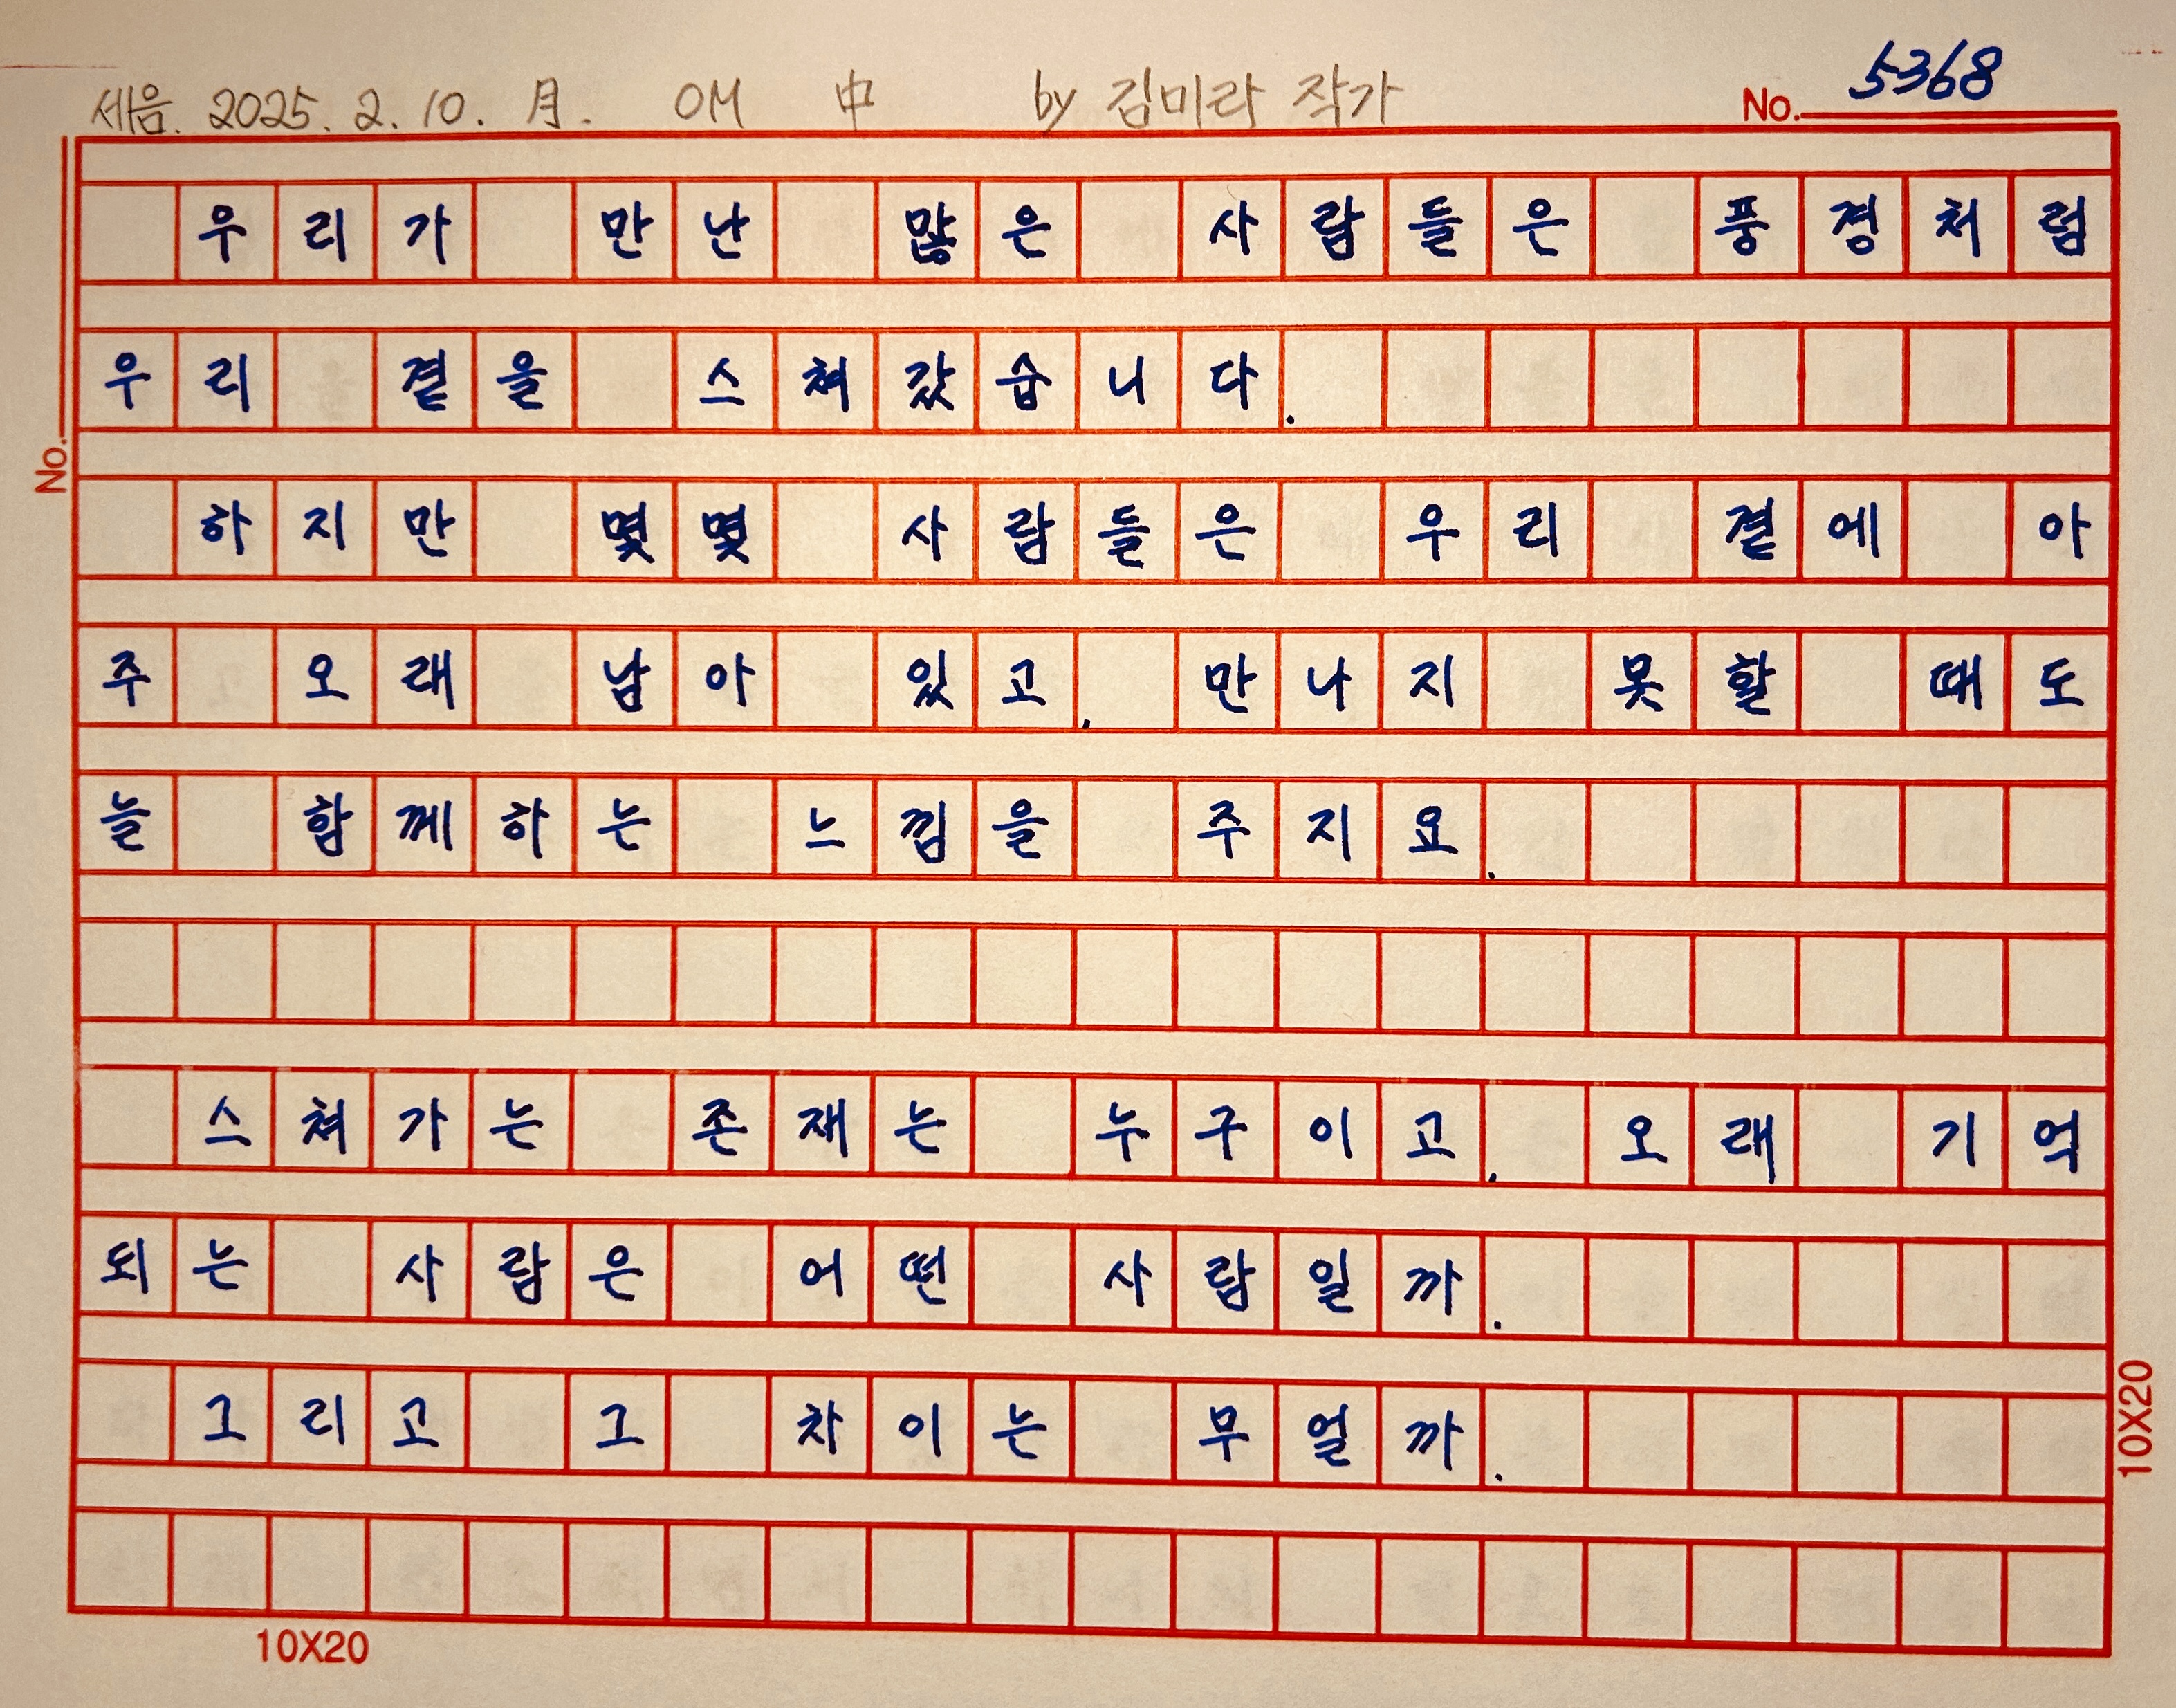 세음. 2025. 2. 10. 月. OM 中 by 김미라 작가
No. 5368
우리가 만난 많은 사람들은 풍경처럼
우리 곁을 스쳐갔습니다.
하지만 몇몇 사람들은 우리 곁에 아
주 오래 남아 있고, 만나지 못할 때도
늘 함께하는 느낌을 주지요.
스쳐가는 존재는 누구이고, 오래 기억
되는 사람은 어떤 사람일까.
그리고 그 차이는 무얼까.
No.
10X20
10X20